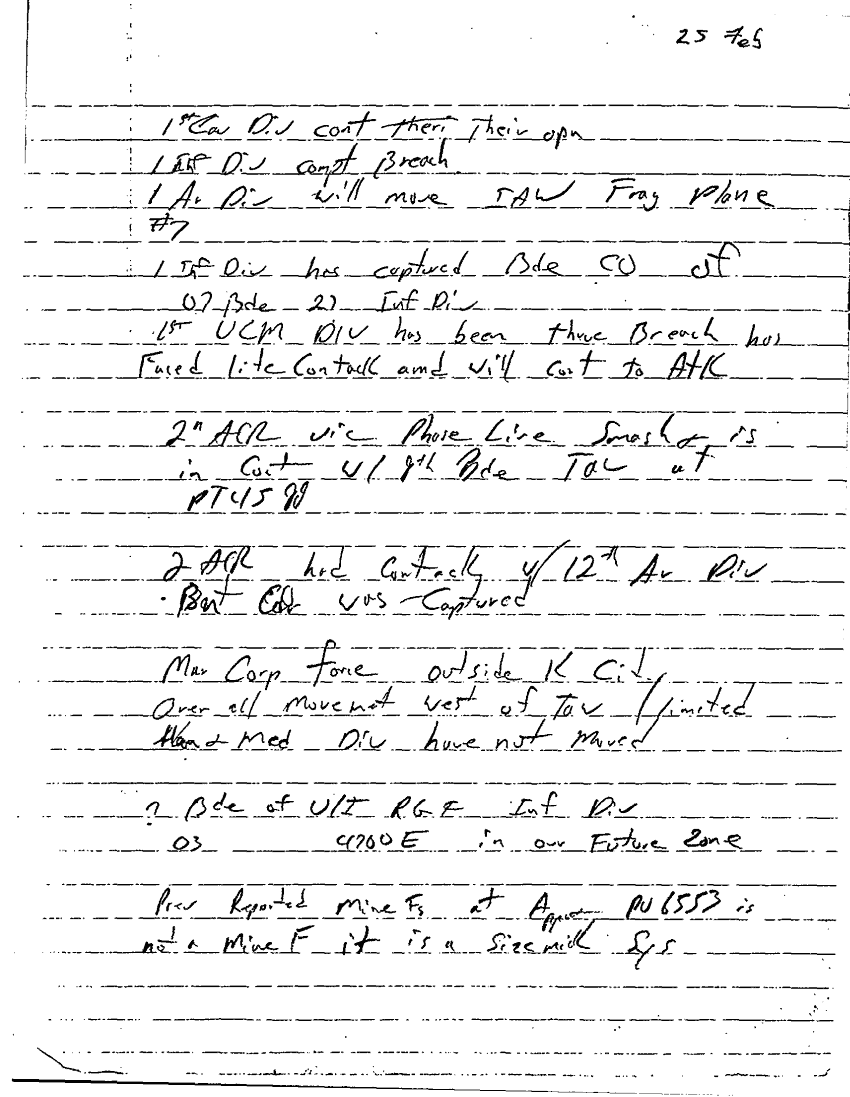 25 Feb
1st Cav Div cont theri Their opn
1 Inf Div compt Breach
1 Ar Div will move IAW Frag Plane
#7
1 Inf Div has captured Bde CO of
07 Bde 27 Inf Div
1st UCM DIV has been thrue Breach has
Faced lite Contack and will cont to AtK
2n ACR vic Phase Line Smash & is
in Cont w/ 9th Bde TAW at
PT4599
2 ACR had Contack w/ 12th Ar Div
Bnt Cdr was Captured
Mar Corp force outside K City
Over all Movenot west of Taw limited
& Med Div have not moved
? Bde of U/I RGF Inf Div
03 4700E in our Future Zone
Prev Reported Mine Fs at Approx PU6553 is
not a Mine F it is a Sizemick Sys